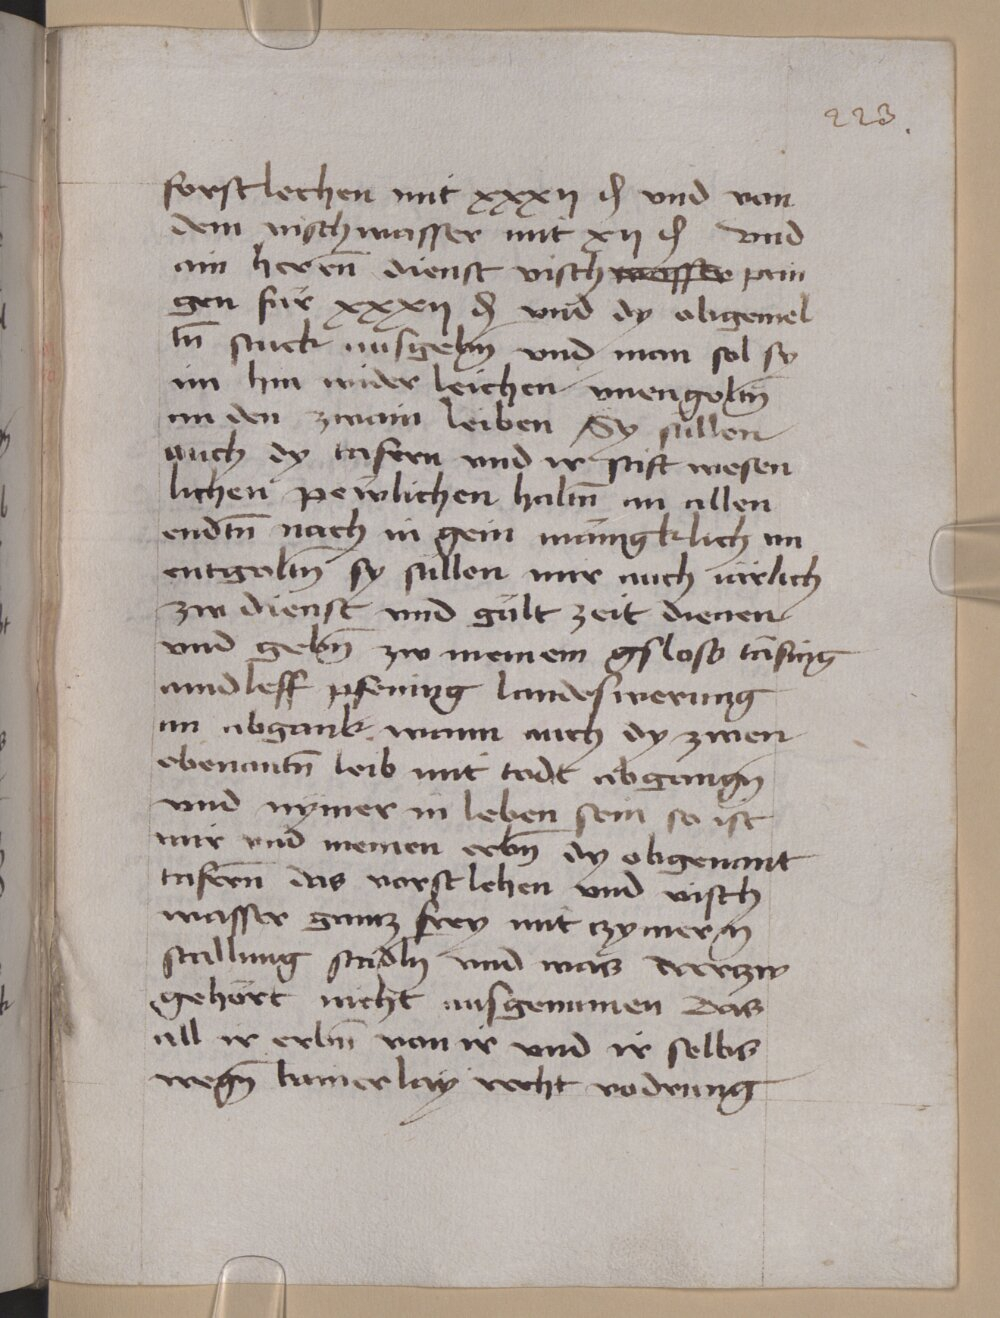 223.
forstlechen mit xxxij ₰ vnd von
dem vischwasser mit xij ₰ vnd
ain heren̄ dienst visch wasser pein
gen für xxxij ₰ vnd dy obgemel
tn̄ stuck ausgebn̄ vnd man sol sy
im hin wider leichen vnengoltn̄
an den zwain leiben Sy sullen
auch dy tafern vnd ir stift wesen
lichen pewlichen haltn̄ an allen
endtn̄ nach in gein mäingklich an
entgoltn̄ sy sullen mir auch iärlich
zw dienst vnd gült zeit dienen
vnd gebn̄ zw meinem gsloss
aindleff pfening landeswerung
an abgank wann auch dy zwen
ebenantn̄ leib mit todt abgangn̄
vnd nymer in leben sein so ist
mir vnd meinen erbn̄ dy obgenant
tafern̄ das vorstlehen vnd visch
wasser gantz frey mit czymern̄
stallung städln vnd was dartzw
gehört nicht ausgenumen das
all ir erbn̄ von ir vnd ir selbs
wegn̄ kainerlay recht vodrung